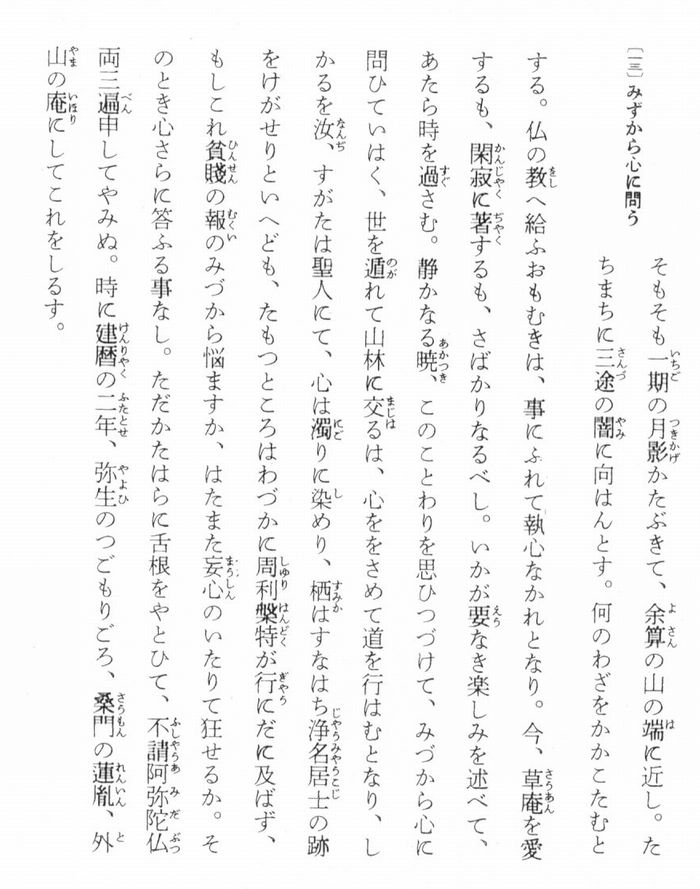 〔一三〕みずから心に問う
そもそも一期の月影かたぶきて、余算の山の端に近し。た
ちまちに三途の闇に向はんとす。何のわざをかかこたむと
する。仏の教へ給ふおもむきは、事にふれて執心なかれとなり。今、草庵を愛
するも、閑寂に著するも、さばかりなるべし。いかが要なき楽しみを述べて、
あたら時を過さむ。静かなる暁、このことわりを思ひつづけて、みづから心に
問ひていはく、世を遁れて山林に交るは、心ををさめて道を行はむとなり、し
かるを汝、すがたは聖人にて、心は濁りに染めり、栖はすなはち浄名居士の跡
をけがせりといへども、たもつところはわづかに周利槃特が行にだに及ばず、
もしこれ貧賤の報のみづから悩ますか、はたまた妄心のいたりて狂せるか。そ
のとき心さらに答ふる事なし。ただかたはらに舌根をやとひて、不請阿弥陀仏
両三遍申してやみぬ。時に建暦の二年、弥生のつごもりごろ、桑門の蓮胤、外
山の庵にしてこれをしるす。